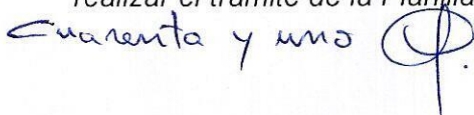 realizar el trámite de la Planilla
Cuarenta y uno